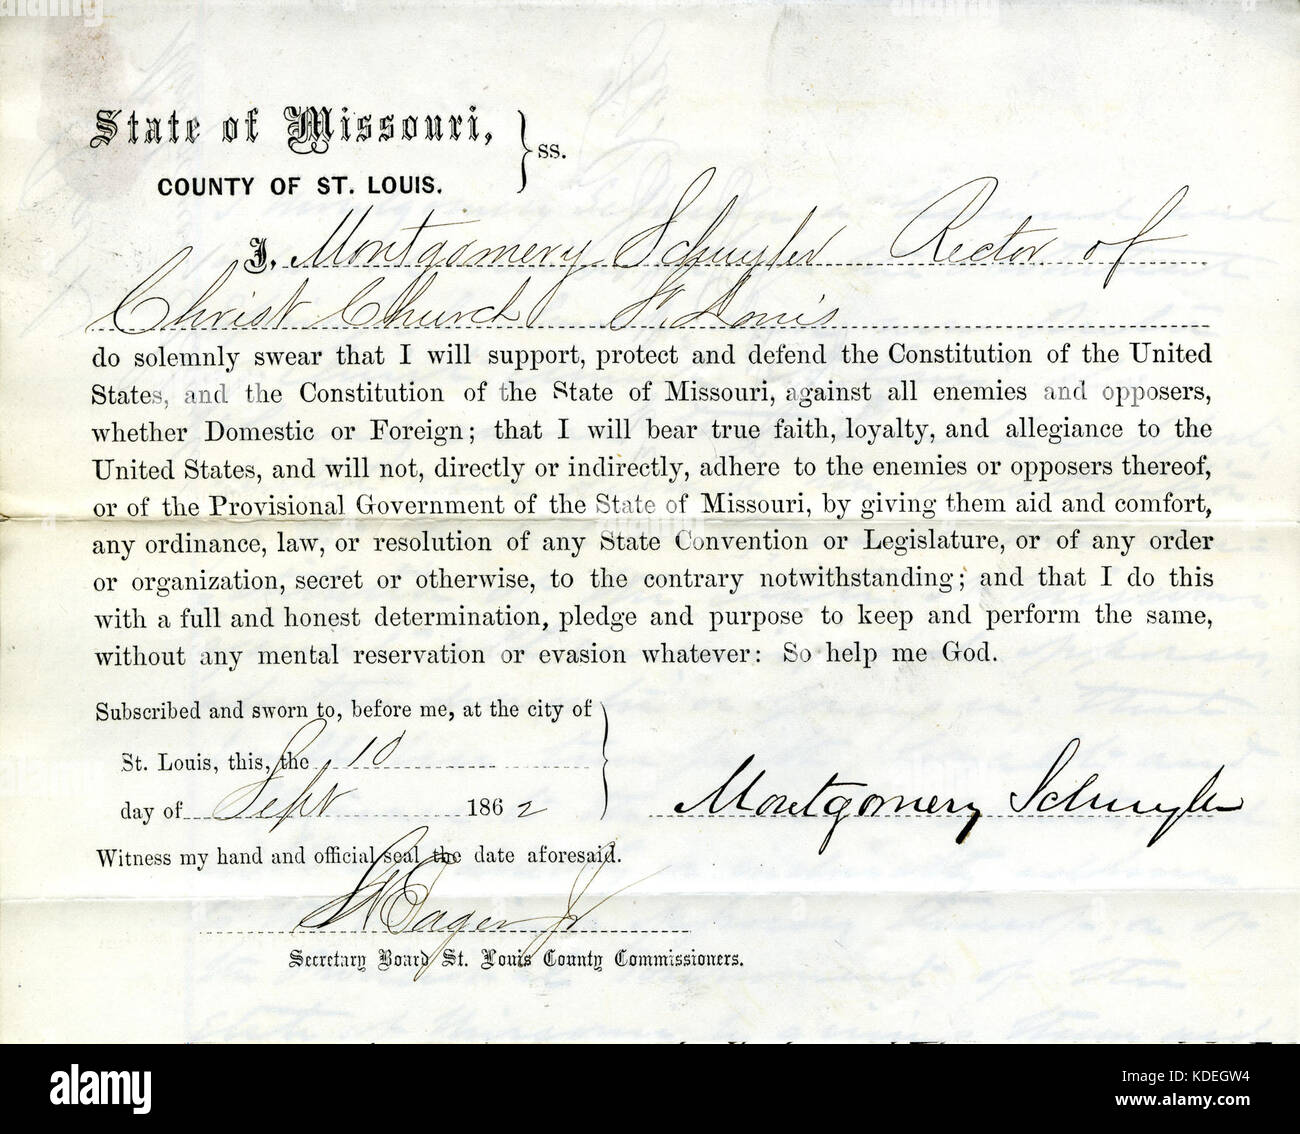 State of Missouri,
COUNTY OF ST. LOUIS.
} ss.
I, Montgomery Schuyler Rector of
Christ Church St. Louis
do solemnly swear that I will support, protect and defend the Constitution of the United
States, and the Constitution of the State of Missouri, against all enemies and opposers,
whether Domestic or Foreign; that I will bear true faith, loyalty, and allegiance to the
United States, and will not, directly or indirectly, adhere to the enemies or opposers thereof,
or of the Provisional Government of the State of Missouri, by giving them aid and comfort,
any ordinance, law, or resolution of any State Convention or Legislature, or of any order
or organization, secret or otherwise, to the contrary notwithstanding; and that I do this
with a full and honest determination, pledge and purpose to keep and perform the same,
without any mental reservation or evasion whatever: So help me God.
Subscribed and sworn to, before me, at the city of
St. Louis, this, the 10
day of Sept 1862
Montgomery Schuyler
Witness my hand and official seal the date aforesaid.
Eager Jr
Secretary Board St. Louis County Commissioners.
alamy
Image ID: KDEGW4
www.alamy.com